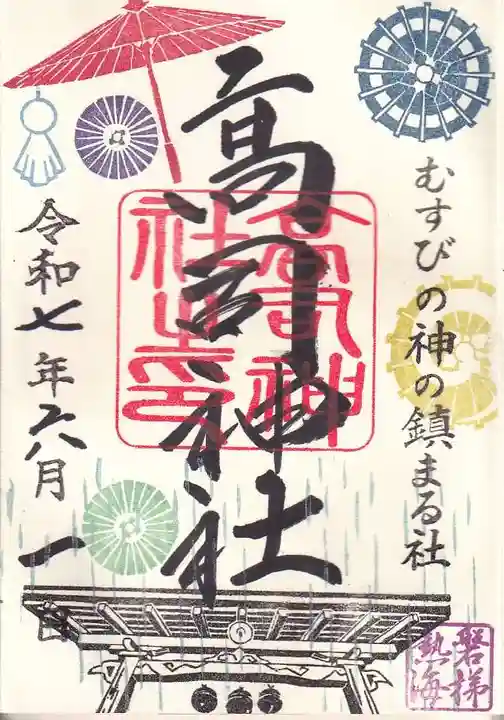 むすびの神の鎮まる社
高司神社
高司神社之印
令和七年六月一日
磐梯熱海